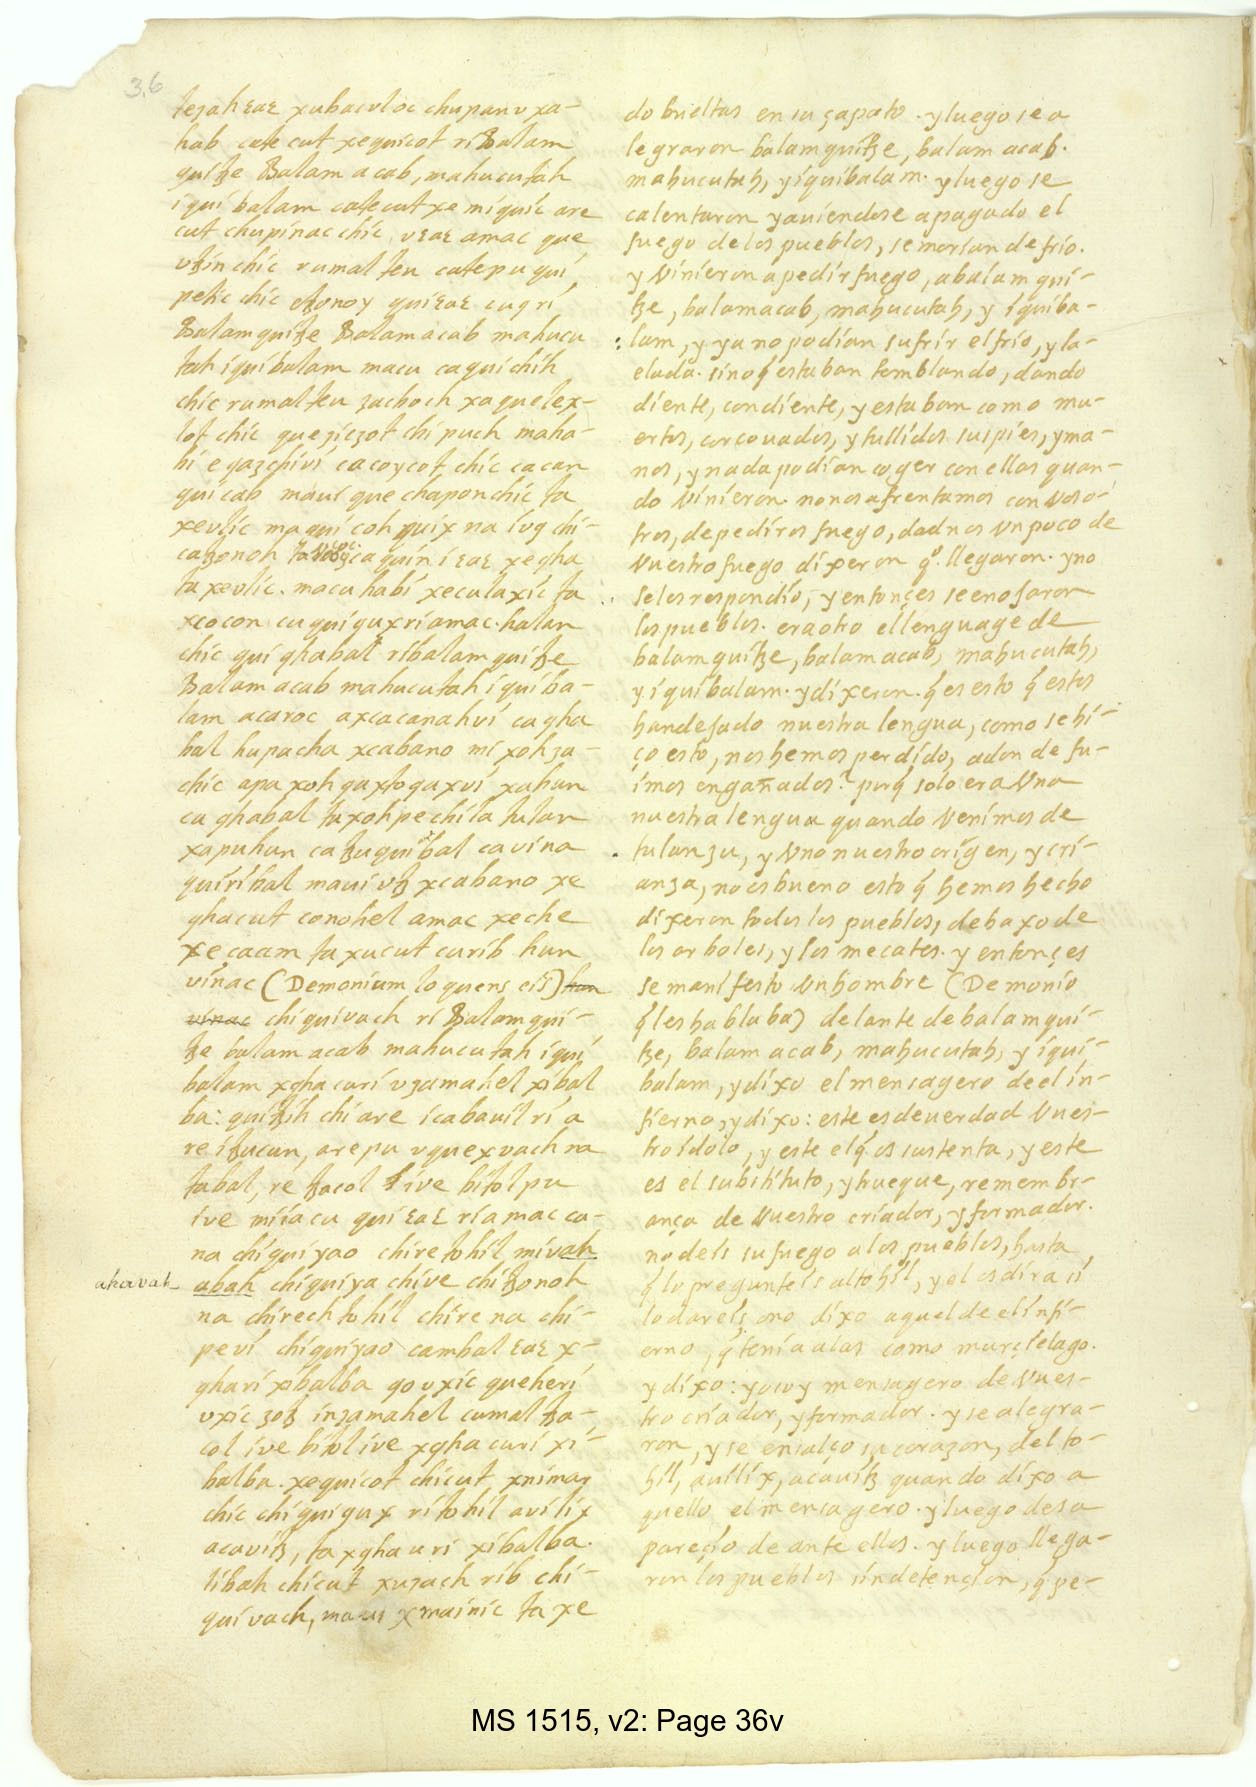 36
lezah ꜫaꜫ xubaculoc chupan u xa-
hab cate cut xequicot ri Balam
quitꜫe Balam acab, mahucutah
iqui balam cate cut xe miquic are
cut chupinac chic, u ꜫaꜫ amac que
utꜫin chic rumal teu catepu qui
petic chic tꜫonoy quiꜫaꜫ cuq ri
Balamquitꜫe Balam acab mahucu
tah iquibalam macu caquichih
chic rumal teu zachoch xaquelex-
lot chic queziczot chi puch maha-
bi e
quicab maui que chapon chic ta
xeulic maqui coh quix na iug chi-
catꜫonoh caquin i ꜫaꜫ xe qha
ta xeulic. macu habi xeculaxic ta
xcocon cu qui qux ri amac. halan
chic qui qhabal ri balam quitꜫe
Balam acab mahucutah iquiba-
lam acaroc axcacanahui caqha
bal hupacha xcabano mi xohza-
chic apa xoh qaxtoqaxui xahun
ca qhabal ta xohpe chila tulan
xapuhun ca tꜫuquibal ca vina
quiribal maui utꜫ xcabano xe
qhacut conohel amac xeche
xe caam ta xucut curib hun
vinac (Demonium loquens eis) hun
vinac chiquivach ri Balamqui-
tꜫe balam acab mahucutah iqui
balam xqha curi uzamahel xibal
ba: quitꜫih chi are icabauil ri a
re itꜫucun, are pu uquexvach na
tabal, re tꜫacol ive bitol pu
ive miiacu qui ꜫaꜫ ri amac ca-
na chiquiyao chire tohil mivah
ahauah
abah chiquiya chive chitꜫonoh
na chirech tohil chire na chi-
pevi chiquiyao cambal ꜫaꜫ x-
qhari xibalba qo uxic queheri
uxic zotꜫ inzamahel cumal tꜫa-
col ive bitol ive xqha curi xi-
balba. xequicot chicut xnimar
chic chiquiqux ri tohil avilix
acavitꜫ, ta xqha u ri xibalba.
libah chicut xuzach rib chi-
quivach, maui xmainic ta xe
do bueltas en su çapato. y luego se a
legraron balamquitꜫe, balam acab.
mahucutah, y iquibalam. y luego se
calentaron y auiendose apagado el
fuego de los pueblos, se morian de frio.
y Vinieron a pedir fuego, a balam qui-
tꜫe, balamacab, mahucutah, y iquiba-
lam, y ya no podian sufrir el frio, y la-
elada. sino q̃ estaban temblando, dando
diente, con diente, y estaban como mu-
ertos, corcouados, y tullidos sus pies, y ma-
nos, y nada podian coger con ellos quan-
do Vinieron. no nos afrentamos con Voso-
tros, de pediros fuego, dad nos Vn poco de
Vuestro fuego dixeron qº. llegaron. y no
se les respondio, y entonçes se enojaron
los pueblos. era otro el lenguage de
balamquitꜫe, balam acab, mahucutah,
y iquibalam. y dixeron. q̃ es esto q̃ estos
han dejado nuestra lengua, como se hi-
ço esto, nos hemos perdido, adonde fu-
imos engañados? porq̃ solo era Vna
nuestra lengua quando Venimos de
tulan zu, y Vno nuestro origen, y cri-
anza, no es bueno esto q̃ hemos hecho
dixeron todos los pueblos, debaxo de
los arboles, y los mecates. y entonçes
se manifesto Vn hombre (Demonio
q̃ les hablaba) delante de balamqui-
tꜫe, balam acab, mahucutah, y iqui-
balam, y dixo el mensagero de el in-
fierno, y dixo: este es de verdad Vues-
tro idolo, y este el q̃ os sustenta, y este
es el substituto, y hueque, remembr-
ança de Vuestro criador, y formador.
no deis su fuego a los pueblos, hasta
q̃ lo pregunteis al tohil, y el os dira si
lo dareis, ono dixo aquel de el infi-
erno, q̃ tenia alas como murçielago.
y dixo: yo soy mensagero de Vues-
tro criador, y formador. y se alegra-
ron, y se ensalço su corazon, del to-
hil, auilix, acauitꜫ quando dixo a
quello el mensagero. y luego desa
pareçio de ante ellos. y luego llega-
ron los pueblos sin detençion, q̃ pe-
MS 1515, v2: Page 36v